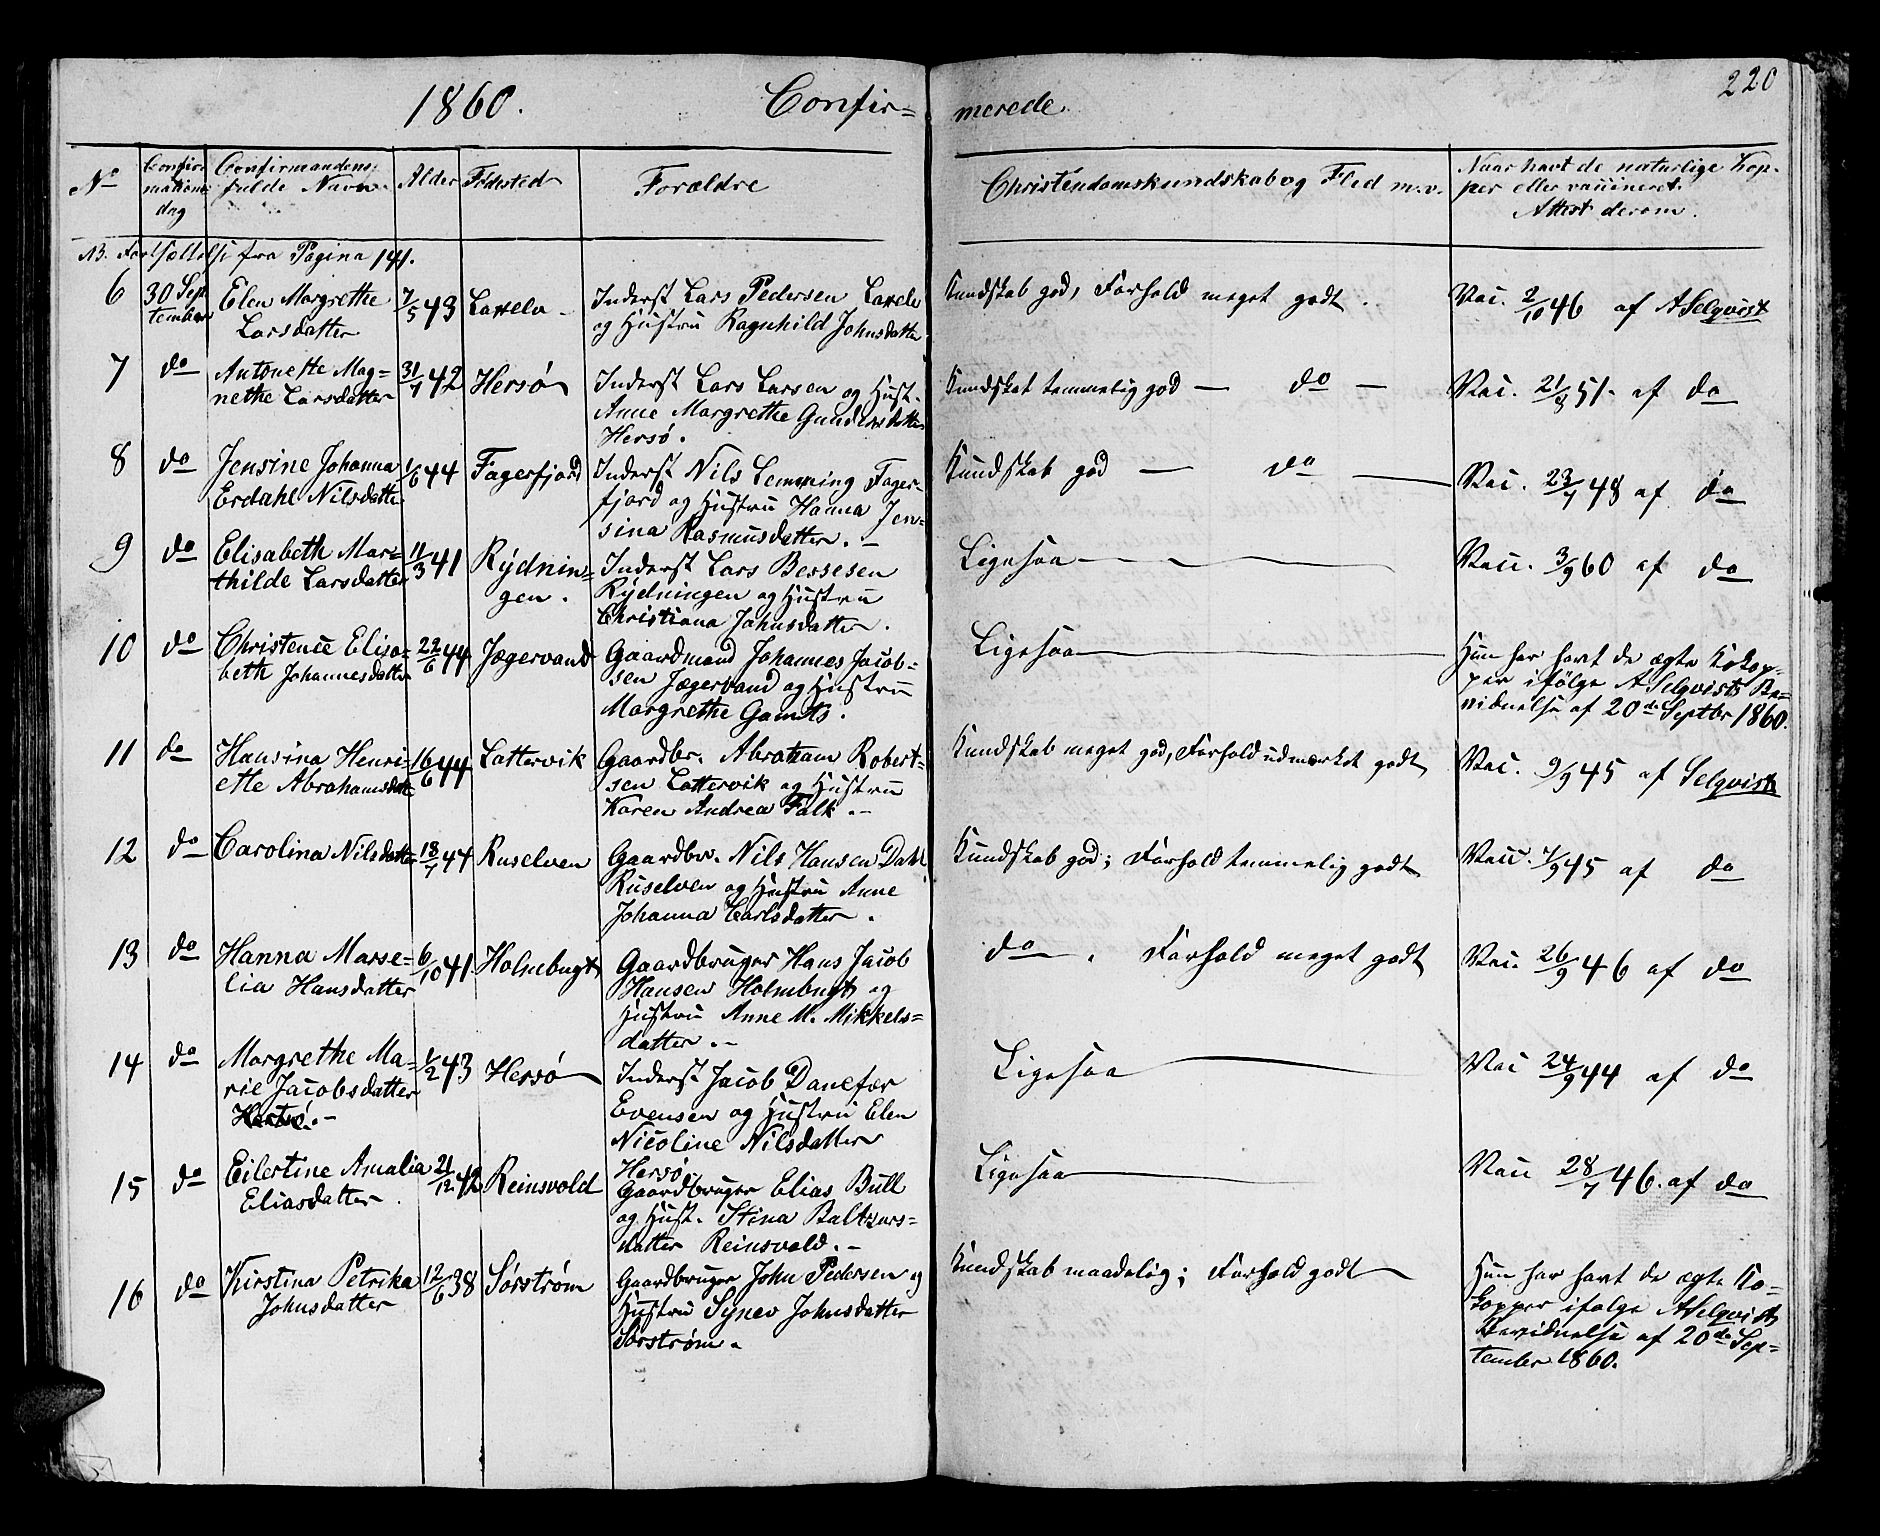 1860. Confir=
merede.
220
No
Confir-
mations
dag
Confirmandens
fulde Navn
Alder
Födested
Forældre
Christendomskundskab og Flid m.v.
Naar havt de naturlige Kop-
per eller vaccineret.
Attest derom.
NB. Fortsættelse fra Pagina 141.
6 30 Sep-
tember
Elen Margrethe
Larsdatter
7/5 43
Laxelv
Inderst Lars Pedersen Laxelv
og Hustru Ragnhild Johnsdatter
Kundskab god, Forhold meget godt.
Vac. 2/10 46 af A Selqvist
7 do
Antonette Mag=
nethe Larsdatter
31/7 42
Hersö
Inderst Lars Larsen og Hust.
Anne Margrethe Gundersdatter
Hersö.
Kundskab temmelig god — do —
Vac. 21/8 51. af do
8 do
Jensine Johanna
Erdahl Nilsdatter
1/6 44
Fagerfjord
Inderst Nils Lemming Fager-
fjord og Hustru Hanna Jen=
sina Rasmusdatter. —
Kundskab god — do —
Vac. 23/7 48 af do
9 do
Elisabeth Mar=
thilde Larsdatter
11/3 41
Rÿdnin=
gen.
Inderst Lars Bessesen
Rÿdningen og Hustru
Christiana Johnsdatter.
Ligesaa
Vacc. 3/9 60 af do
10 do
Christence Elisa=
beth Johannesdatter
22/6 44
Jægervand
Gaardmand Johannes Jacob=
sen Jægervand og Hustru
Margrethe Gamits.
Ligesaa
Hun har havt de ægte Kokop=
per ifölge A Selqvists Be=
vidnelse af 20de Septbr 1860.
11 do
Hansina Henri=
ette Abrahamsdatter
16/6 44
Lattervik
Gaardbr. Abraham Robert=
sen Lattervik og Hustru
Karen Andrea Falk. —
Kundskab meget god, Forhold udmærket godt
Vac. 9/9 45 af Selqvist
12 do
Carolina Nilsdatter
18/7 44
Ruselven
Gaardbr. Nils Hansen Dahl
Ruselven og Hustru Anne
Johanna Carlsdatter.
Kundskab god; Forhold temmelig godt
Vacc. 7/9 45 af do
13 do
Hanna Masse=
lia Hansdatter
6/10 41
Holmbugt
Gaardbruger Hans Jacob
Hansen Holmbugt og
Hustru Anne M. Mikkels=
datter. —
do. Forhold meget godt
Vac. 26/9 46 af do
14 do
Margrethe Ma=
rie Jacobsdatter
1/2 43
Hersö
Inderst Jacob Danefær
Evensen og Hustru Elen
Nicoline Nilsdatter
Hersö
Ligesaa
Vac 24/9 44 af do
15 do
Eilertine Amalia
Eliasdatter
21/12 42
Reinsvold
Gaardbruger Elias Bull
og Hust. Stina Baltzars=
datter Reinsvold. —
Ligesaa
Vacc 28/7 46. af do
16 do
Kirstina Petrika
Johnsdatter
12/6 38
Sörström
Gaardbruger John Pedersen og
Hustru Synev Johnsdatter
Sörström.
Kundskab maadelig; Forhold godt
Hun har havt de ægte Ko=
kopper ifölge A Selqvists
Bevidnelse af 20de Sep=
tember 1860.